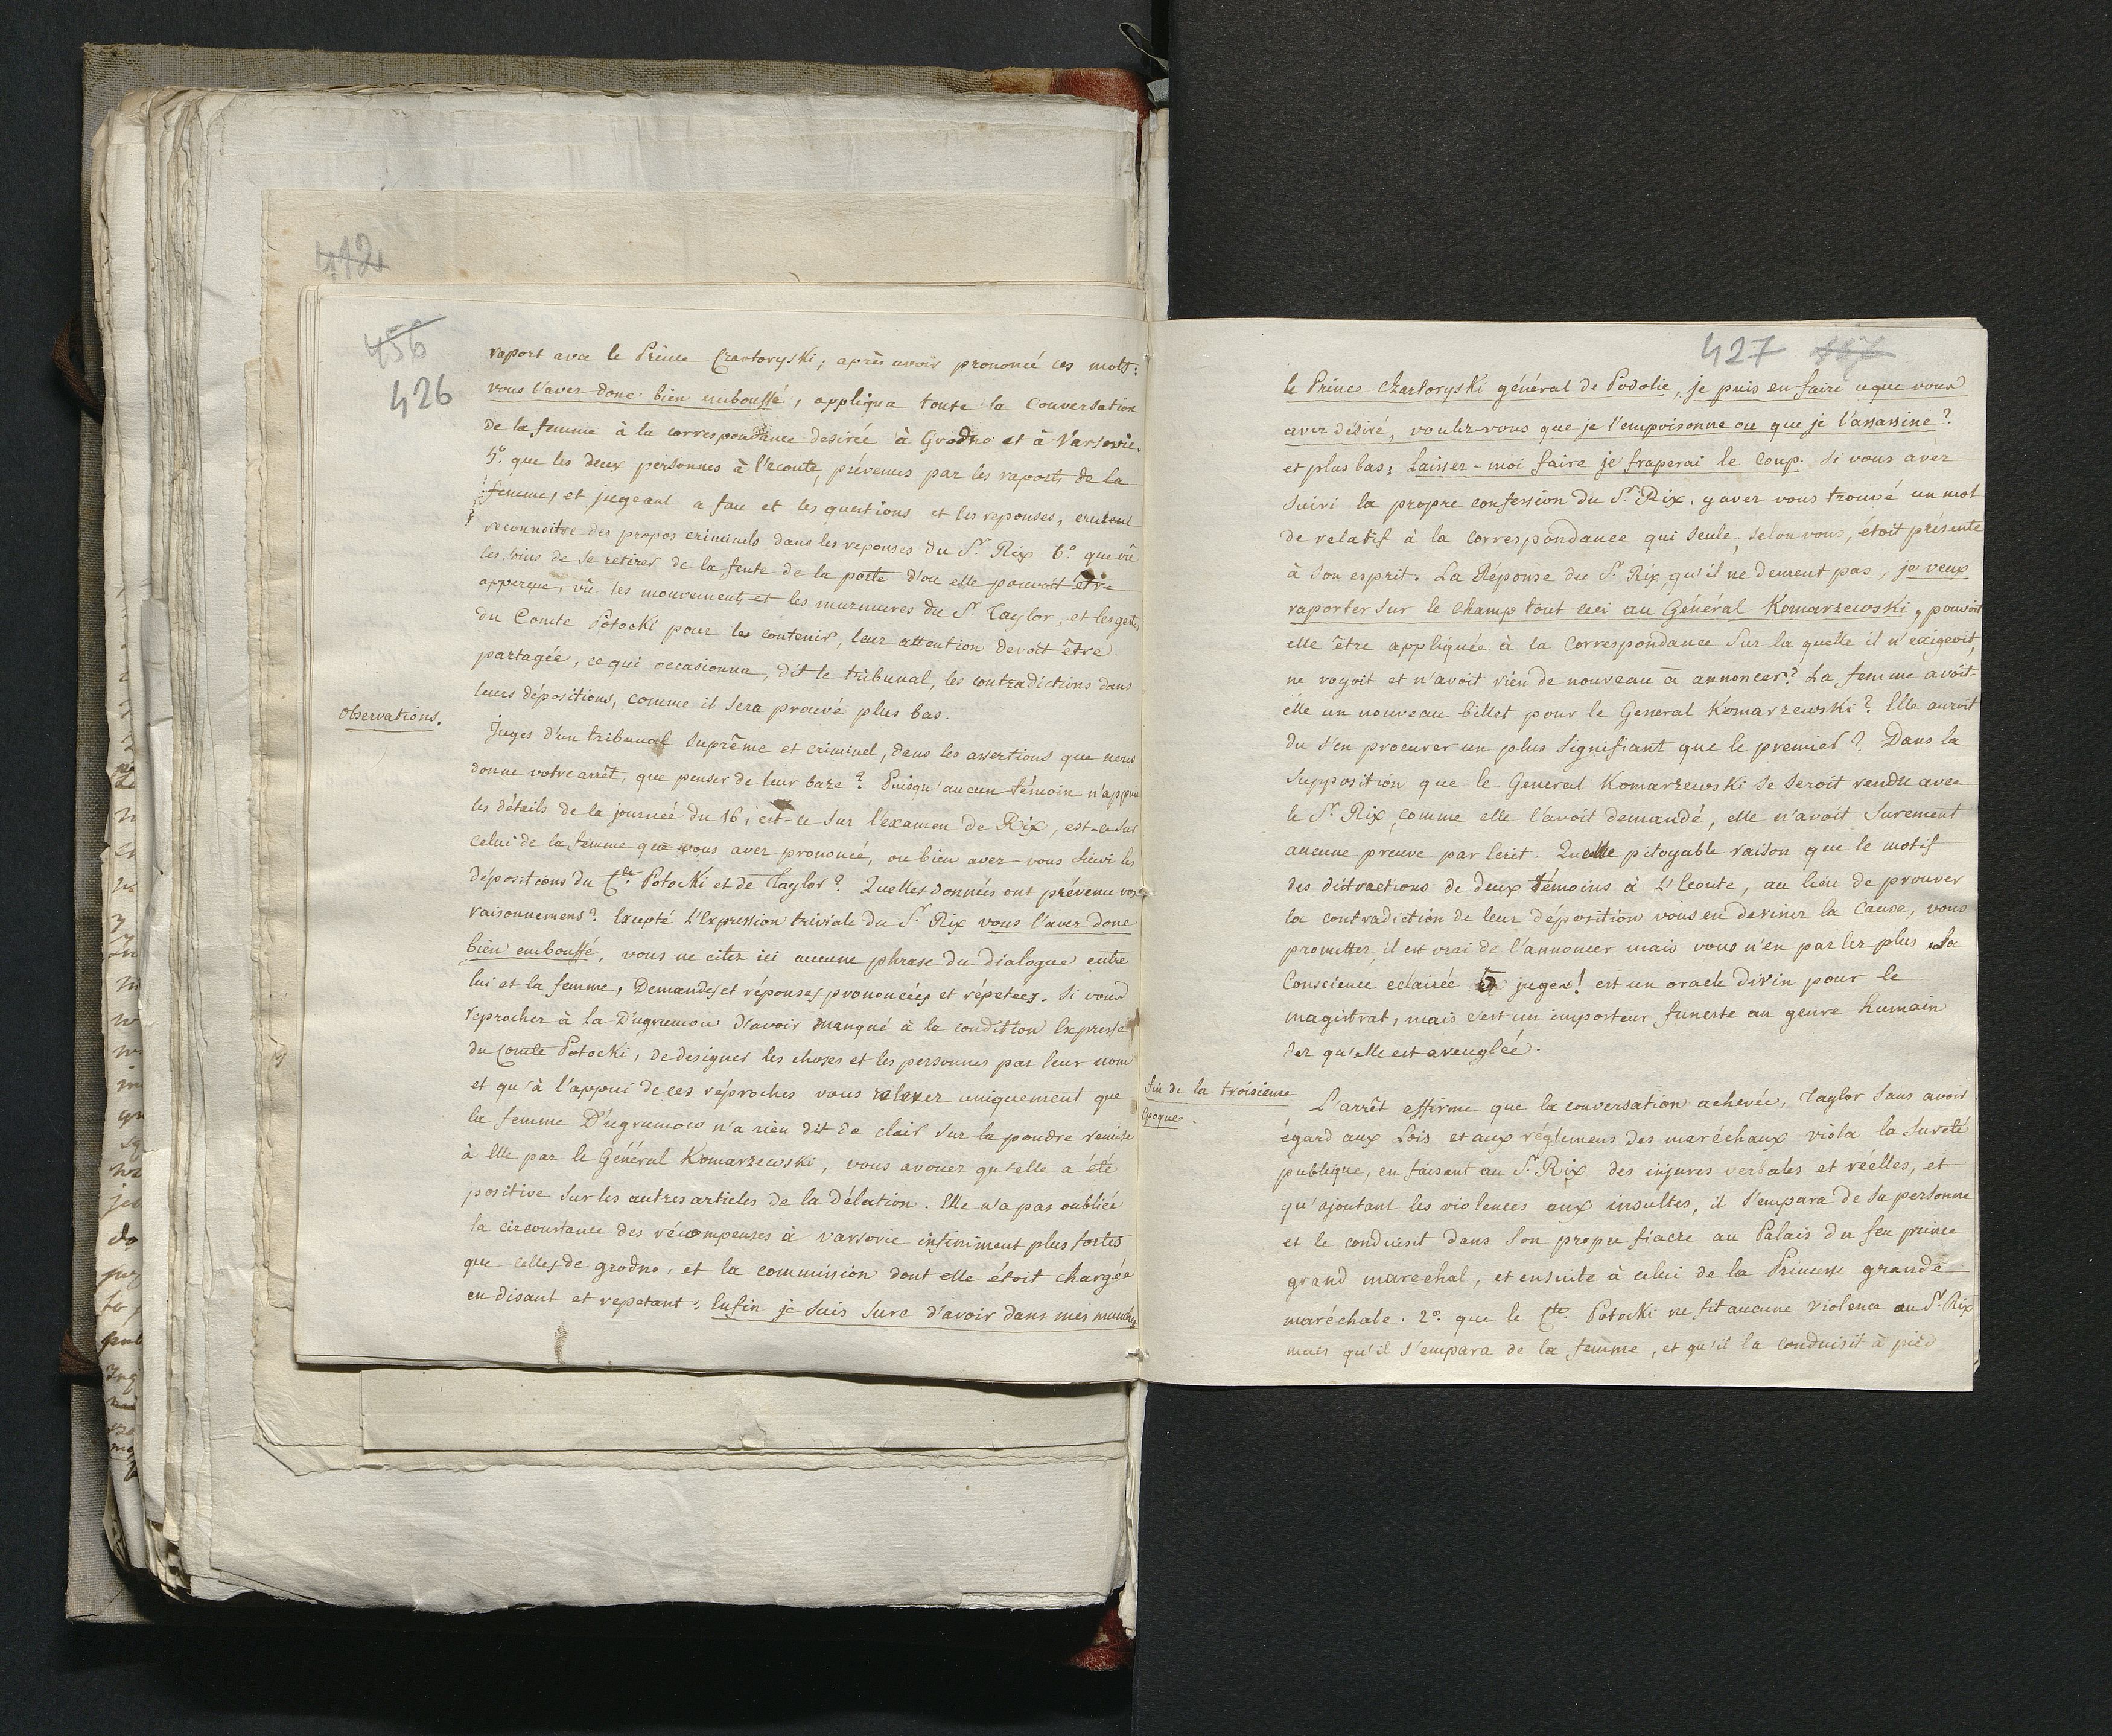 412
456
426
raport avec le Prince Czartoryski; après avoir prononcé ces mots:
vous l'avez donc bien embouffé, appliqua toute la conversation
de la femme à la correspondance desirée à Grodno et à Varsovie.
5.° que les deux personnes à l'ecoute, prévenus par les raports de la
femme, et jugeant a faux et les questions et les reponses, crurent
reconnoitre des propos criminels dans les reponses du Sr. Rix 6.° que vû
les soins de se retirer de la fente de la porte d'ou elle pouvoit être
apperçue, vû les mouvements et les murmures du Sr. Taylor, et les gestes
du Comte Potocki pour les contenir, leur attention devoit être
partagée, ce qui occasionna, dit le tribunal, les contradictions dans
leurs dépositions, comme il sera prouvé plus bas.
Observations.
Juges d'un tribunal Suprême et criminel, dans les assertions que nous
donne votre arrêt, que penser de leur baze? Puisqu'aucun témoin n'appuie
les détails de la journée du 16, est-ce sur l'examen de Rix, est-ce sur
celui de la femme que vous avez prononcé, ou bien avez-vous suivi les
dépositions du Cte. Potocki et de Taylor? Quelles données ont prévenu vos
raisonnemens? Excepté l'Expression triviale du Sr. Rix vous l'avez donc
bien embouffé, vous ne citez ici aucune phrase du dialogue entre
lui et la femme, Demandes et réponses prononcées et répetees. Si vous
reprochez à la D'ugrumow d'avoir manqué à la condition Expresse
du Comte Potocki, de designer les choses et les personnes par leur nom
et qu'à l'appui de ces réproches vous relevez uniquement que
la femme D'ugrumow n'a rien dit de clair sur la poudre remise
à Elle par le Général Komarzewski, vous avouez qu'elle a été
positive sur les autres articles de la délation. Elle n'a pas oubliée
la circonstance des récompenses à Varsovie infiniment plus fortes
que celles de grodno, et la commission dont elle étoit chargée
en disant et repetant: Enfin je suis sure d'avoir dans mes manches
427
le Prince Chartoryski général de Podolie, je puis en faire ceque vous
avez désiré, voulez-vous que je l'empoisonne ou que je l'assassine?
et plus bas; Laissez-moi faire je fraperai le coup. Si vous avez
suivi la propre confession du Sr. Rix, y avez vous trouvé un mot
de relatif à la correspondance qui seule, selon vous, étoit présente
à son esprit. La Réponse du Sr. Rix, qu'il ne dement pas, je veux
raporter sur le champ tout ceci au Général Komarzewski, pouvoit
elle être appliquée à la Correspondance sur la quelle il n'exigeoit,
ne voyoit et n'avoit rien de nouveau à annoncer? La femme avoit-
elle un nouveau billet pour le General Komarzewski? Elle auroit
du s'en procurer un plus signifiant que le premier? Dans la
supposition que le General Komarzewski se seroit rendu avec
le Sr. Rix, comme elle l'avoit demandé, elle n'avoit surement
aucune preuve par Ecrit. Quelle pitoyable raison que le motif
des distractions de deux témoins à l'Ecoute, au lieu de prouver
la contradiction de leur déposition vous en devinez la cause, vous
promettez, il est vrai de l'annoncer mais vous n'en parlez plus. La
Conscience eclairée O juges! est un oracle divin pour le
magistrat, mais c'est un imposteur funeste au genre humain
dez qu'elle est aveuglée.
fin de la troisieme
Epoque.
L'arrêt affirme que la conversation achevée, Taylor sans avoir
égard aux Lois et aux réglemens des maréchaux viola la sureté
publique, en faisant au Sr. Rix des injures verbales et réelles, et
qu'ajoutant les violences aux insultes, il s'empara de sa personne
et le conduisit dans son propre fiacre au Palais du feu prince
grand marechal, et ensuite à celui de la Princesse grande
maréchale. 2.° que le Cte. Potocki ne fit aucune violence au Sr. Rix
mais qu'il s'empara de la femme, et qu'il la conduisit à pied